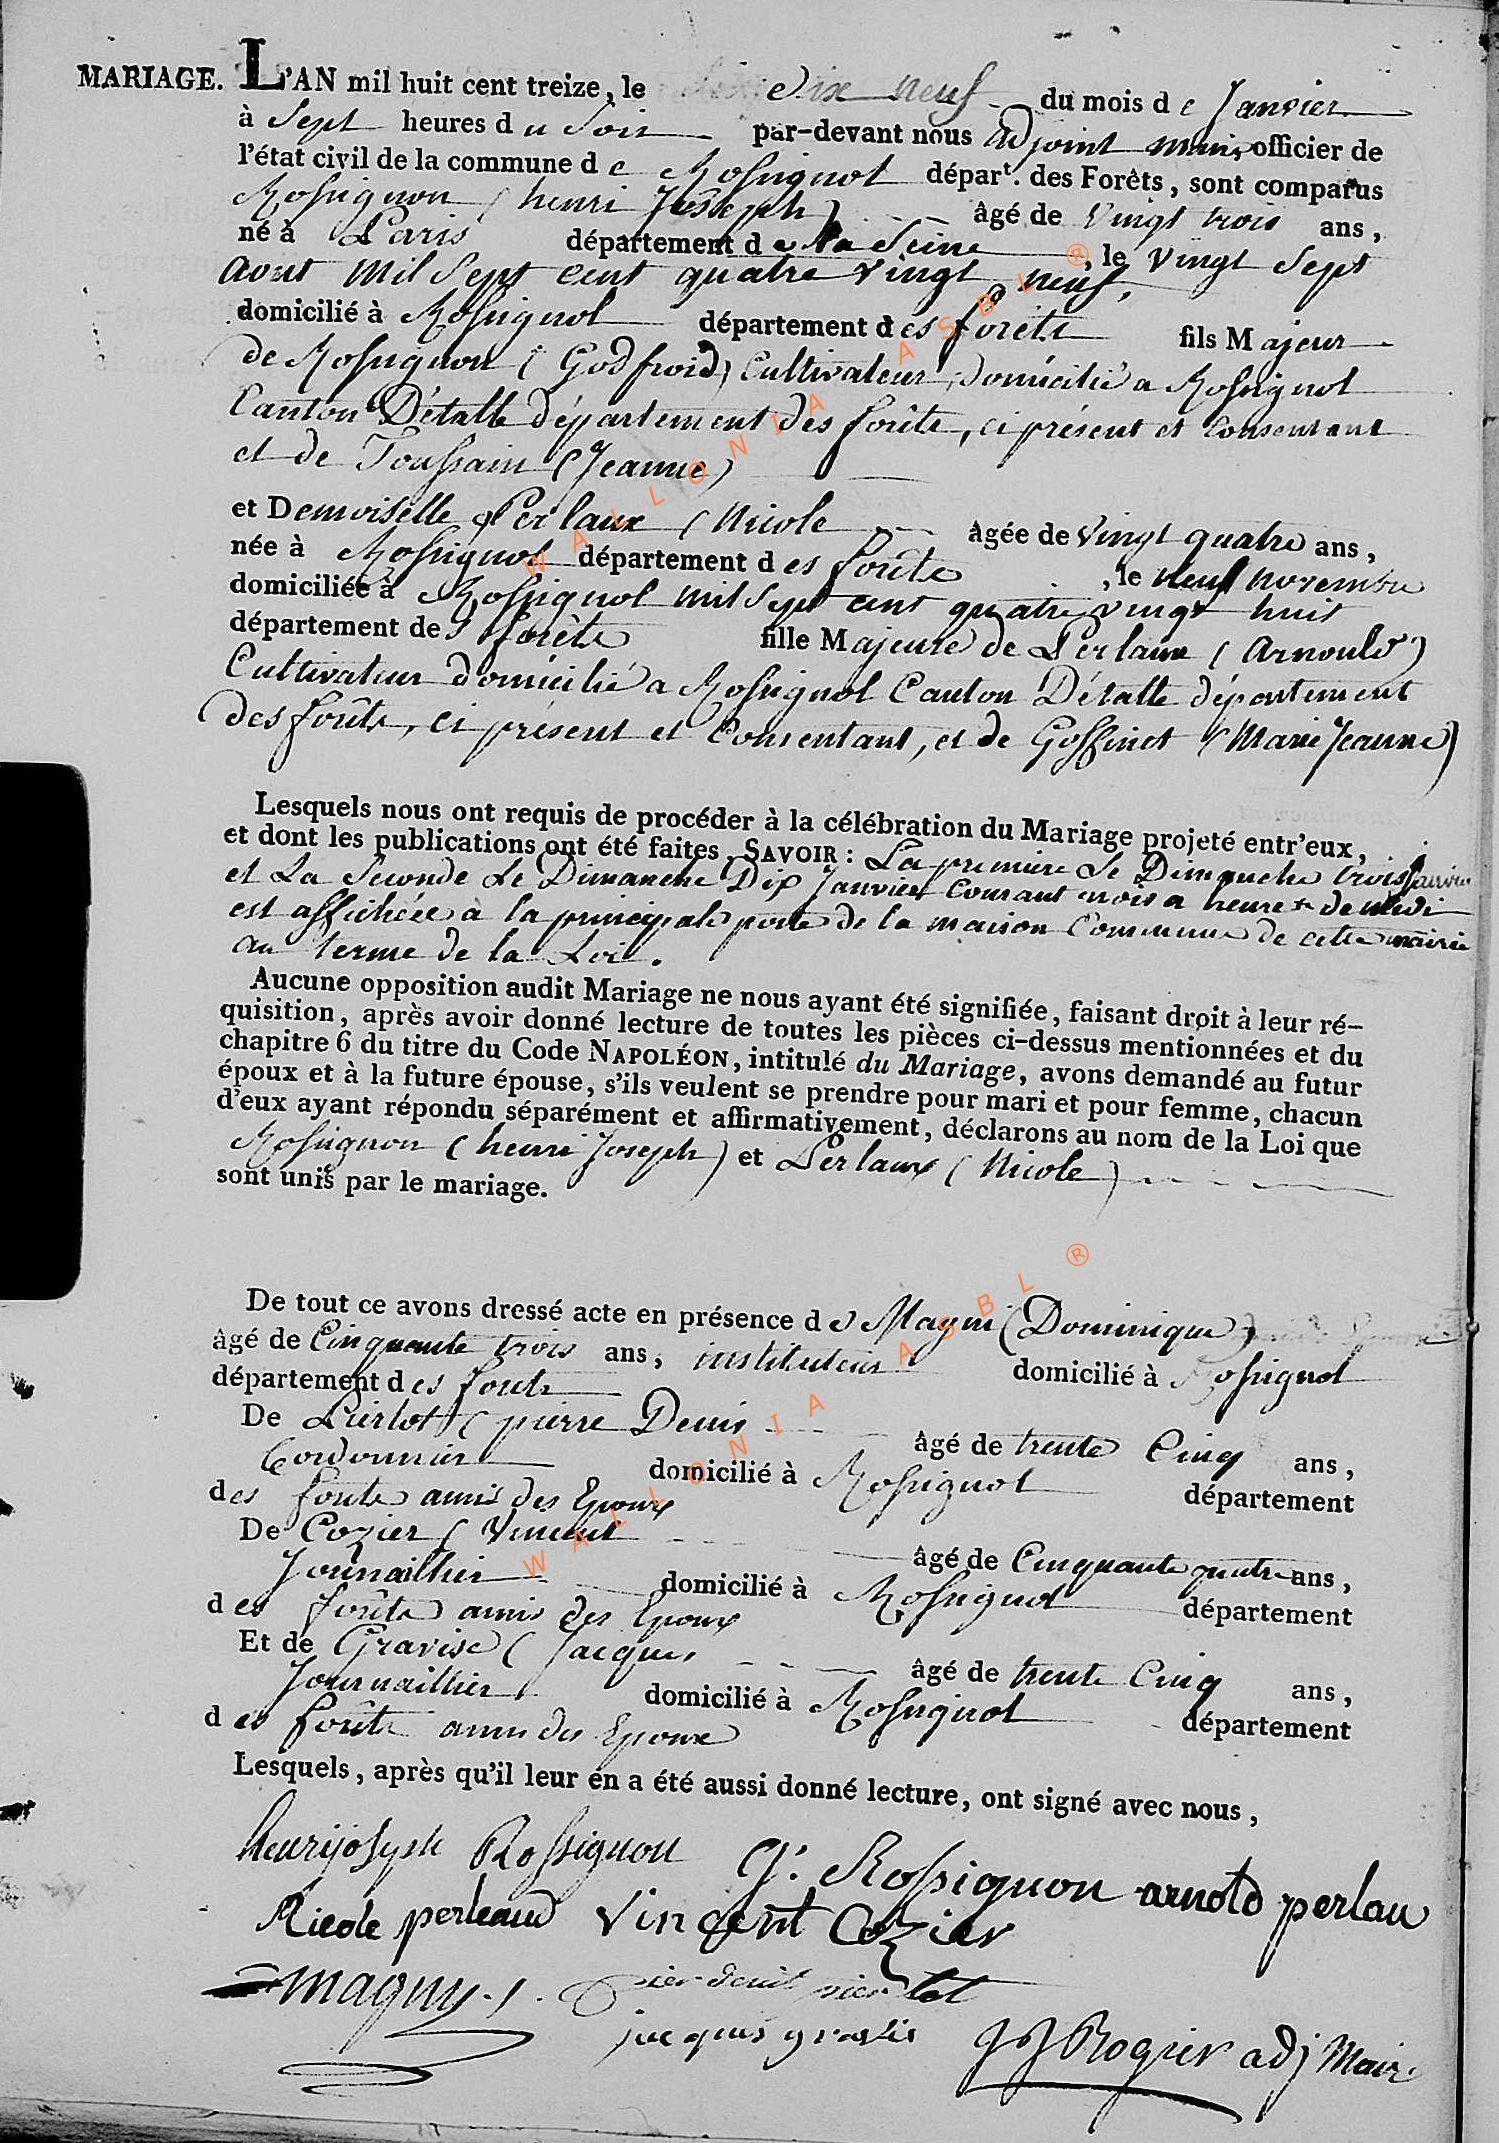 MARIAGE. L'AN mil huit cent treize, le dix neuf du mois de Janvier
à Sept heures du Soir par-devant nous adjoint maire officier de
l'état civil de la commune de Rossignol départ. des Forêts, sont comparus
Rossignon (henri Joseph) âgé de vingt trois ans,
né à Paris département de la Seine, le vingt Sept
aout mil Sept cent quatre vingt neuf,
domicilié à Rossignol département des forêts fils Majeur
de Rossignon (Godfroid) Cultivateur, domicilié a Rossignol
Canton D'étalle département des forêts, ci présent et Consentant
et de Toussain (Jeanne)
et Demoiselle Perlaux (Nicole âgée de vingt quatre ans,
née à Rossignol département des forêts, le neuf novembre
domiciliée à Rossignol mil Sept cent quatre vingt huit
département des forêts fille Majeure de Perlaux (Arnould)
Cultivateur domicilié a Rossignol Canton D'étalle département
des forêts, ci présent et Consentant, et de Goffinet (Marie Jeanne)
Lesquels nous ont requis de procéder à la célébration du Mariage projeté entr'eux,
et dont les publications ont été faites, SAVOIR : La premiere Le Dimanche trois Janvier
et La Seconde Le Dimanche Dix Janvier Courant mois a heure de Midi
est affichée à la principale porte de la maison Commune de cette mairie
au terme de la Loi.
Aucune opposition audit Mariage ne nous ayant été signifiée, faisant droit à leur ré-
quisition, après avoir donné lecture de toutes les pièces ci-dessus mentionnées et du
chapitre 6 du titre du Code NAPOLÉON, intitulé du Mariage, avons demandé au futur
époux et à la future épouse, s'ils veulent se prendre pour mari et pour femme, chacun
d'eux ayant répondu séparément et affirmativement, déclarons au nom de la Loi que
Rossignon (henri Joseph) et Perlaux (Nicole)
sont unis par le mariage.
De tout ce avons dressé acte en présence de Magni (Dominique)
âgé de Cinquante trois ans, instituteur domicilié à Rossignol
département des forêts
De Pierlot (pierre Denis âgé de trente Cinq ans,
Cordonnier domicilié à Rossignol département
des forêts amis des Epoux
De Cozier (Vincent âgé de Cinquante quatre ans,
Journaillier domicilié à Rossignol département
des forêts amis des Epoux
Et de Gravise (Jacques âgé de trente Cinq ans,
Journaillier domicilié à Rossignol département
des forêts amis des Epoux
Lesquels, après qu'il leur en a été aussi donné lecture, ont signé avec nous,
henrijoseph Rossignon G. Rossignon arnold perlau
Nicole perleaud Vincent Cozier
magny pier denis pierlot
jacques gravis JJ Rogier adj Maire
WALLONIA ASBL ®
WALLONIA ASBL ®